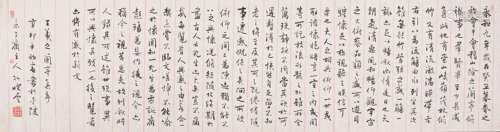 永和九年歲在癸丑暮春之
初會于會稽山陰之蘭亭脩
禊事也群賢畢至少長咸
集此地有崇山峻領茂林脩
竹又有清流激湍映帶左
右引以為流觴曲水列坐其次
雖無絲竹管弦之盛一觴一
詠亦足以暢敘幽情是日也天
朗氣清惠風和暢仰觀宇宙
之大俯察品類之盛所以遊目
騁懷足以極視聽之娛信可
樂也夫人之相與俯仰一世
或取諸懷抱悟言一室之內或
因寄所託放浪形骸之外雖
趣舍萬殊靜躁不同當其欣
於所遇暫得於己快然自足不
知老之將至及其所之既倦情
隨事遷感慨係之矣向之所
欣俛仰之間以為陳迹猶不
能不以之興懷況脩短隨化終期
於盡古人云死生亦大矣豈不
痛哉每攬昔人興感之由若合一
契未嘗不臨文嗟悼不能喻
之於懷固知一死生為虛誕齊
彭殤為妄作後之視今亦由今
之視昔悲夫故列敘時
人錄其所述雖世殊事異
所以興懷其致一也後之攬者
亦將有感於斯文
王羲之蘭亭集序